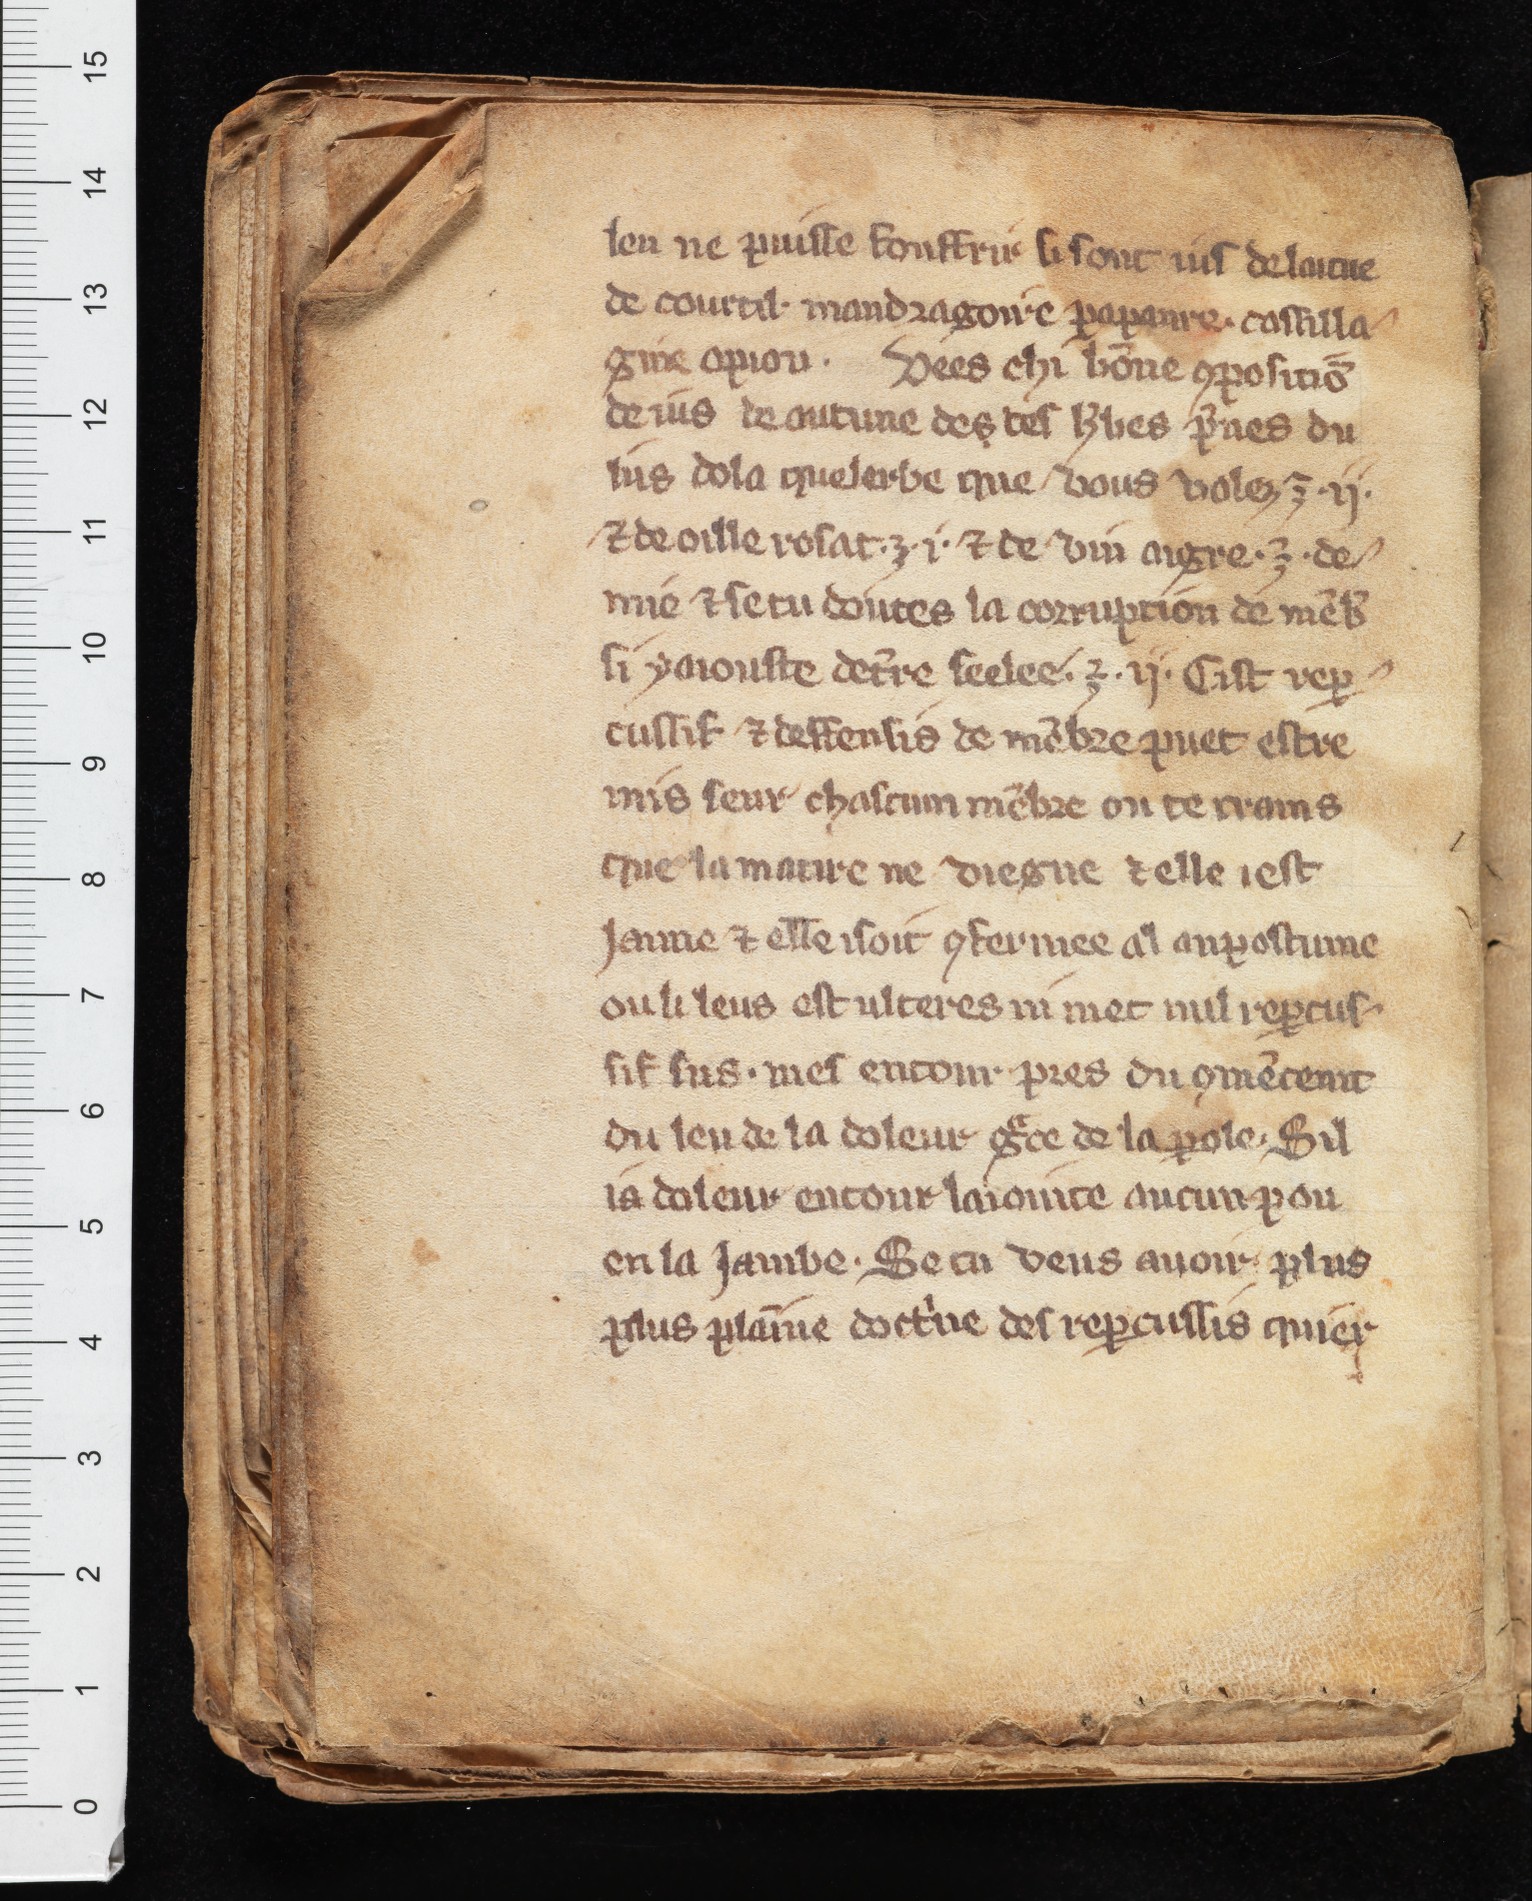 leu ne puisse souffrir si sont ius delaitue
de courtil· mandragoire papaure· cassilla
gine opiou· Vees chi bōne ꝯpositiō
de ius de autune des tes h̾bes p̃nes du
ius dola quelerbe que vous volez ℥·ij·
⁊ de oille rosat·℥·i· ⁊ de vin aigre·℥·de
mie ⁊ se tu doutes la corruption de mēb̃
si yaiouste det̃re seelee·℥·ij· Cist rep̱
cussif ⁊ deffensis de mēbre puet estre
mis seur chascun mēbre ou te crains
que la matire ne viegne ⁊ elle i est
Jaune ⁊ elle isoit ꝯfermee al anpostume
ou li leus est ulteres ni met nul rep̱cus
sif sus· mes entour pres du ꝯmēcemt
du leu de la doleur gͣce de la p̱ole· Sil
ia doleur entour laiointe aucun pou
en la Jambe· Se tu veus auoir plus
plus plaīne doctⁱne des rep̱cussis quier
15
14
13
12
11
10
9
8
7
6
5
4
3
2
1
0